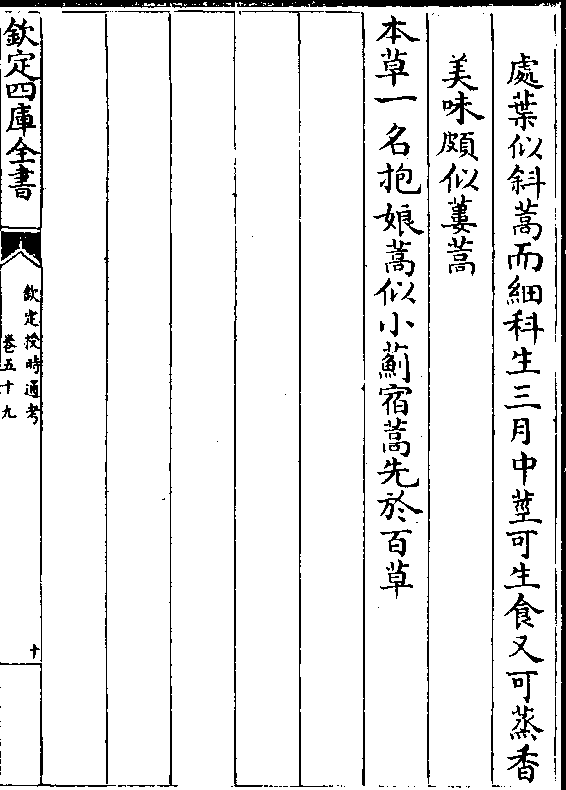 處葉似斜蒿而細科生三月中莖可生食又可蒸香
美味頗似蔞蒿
本草一名抱娘蒿似小薊宿蒿先於百草
欽定四庫全書
欽定授時通考
卷五十九
十